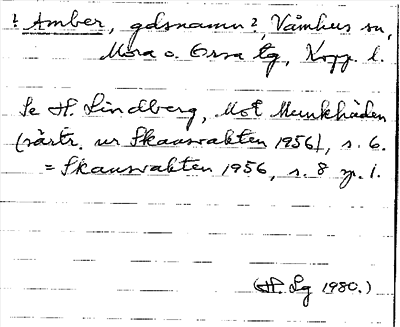 ? Amber, gdsnamn?, Våmhus sn,
Mora o. Orsa tg, Kopp. l.
Se H. Lindberg, Mot Munkhåden
(särtr. ur Skansvakten 1956), s. 6.
= Skansvakten 1956, s. 8 sp. 1.
(H. Lg 1980.)